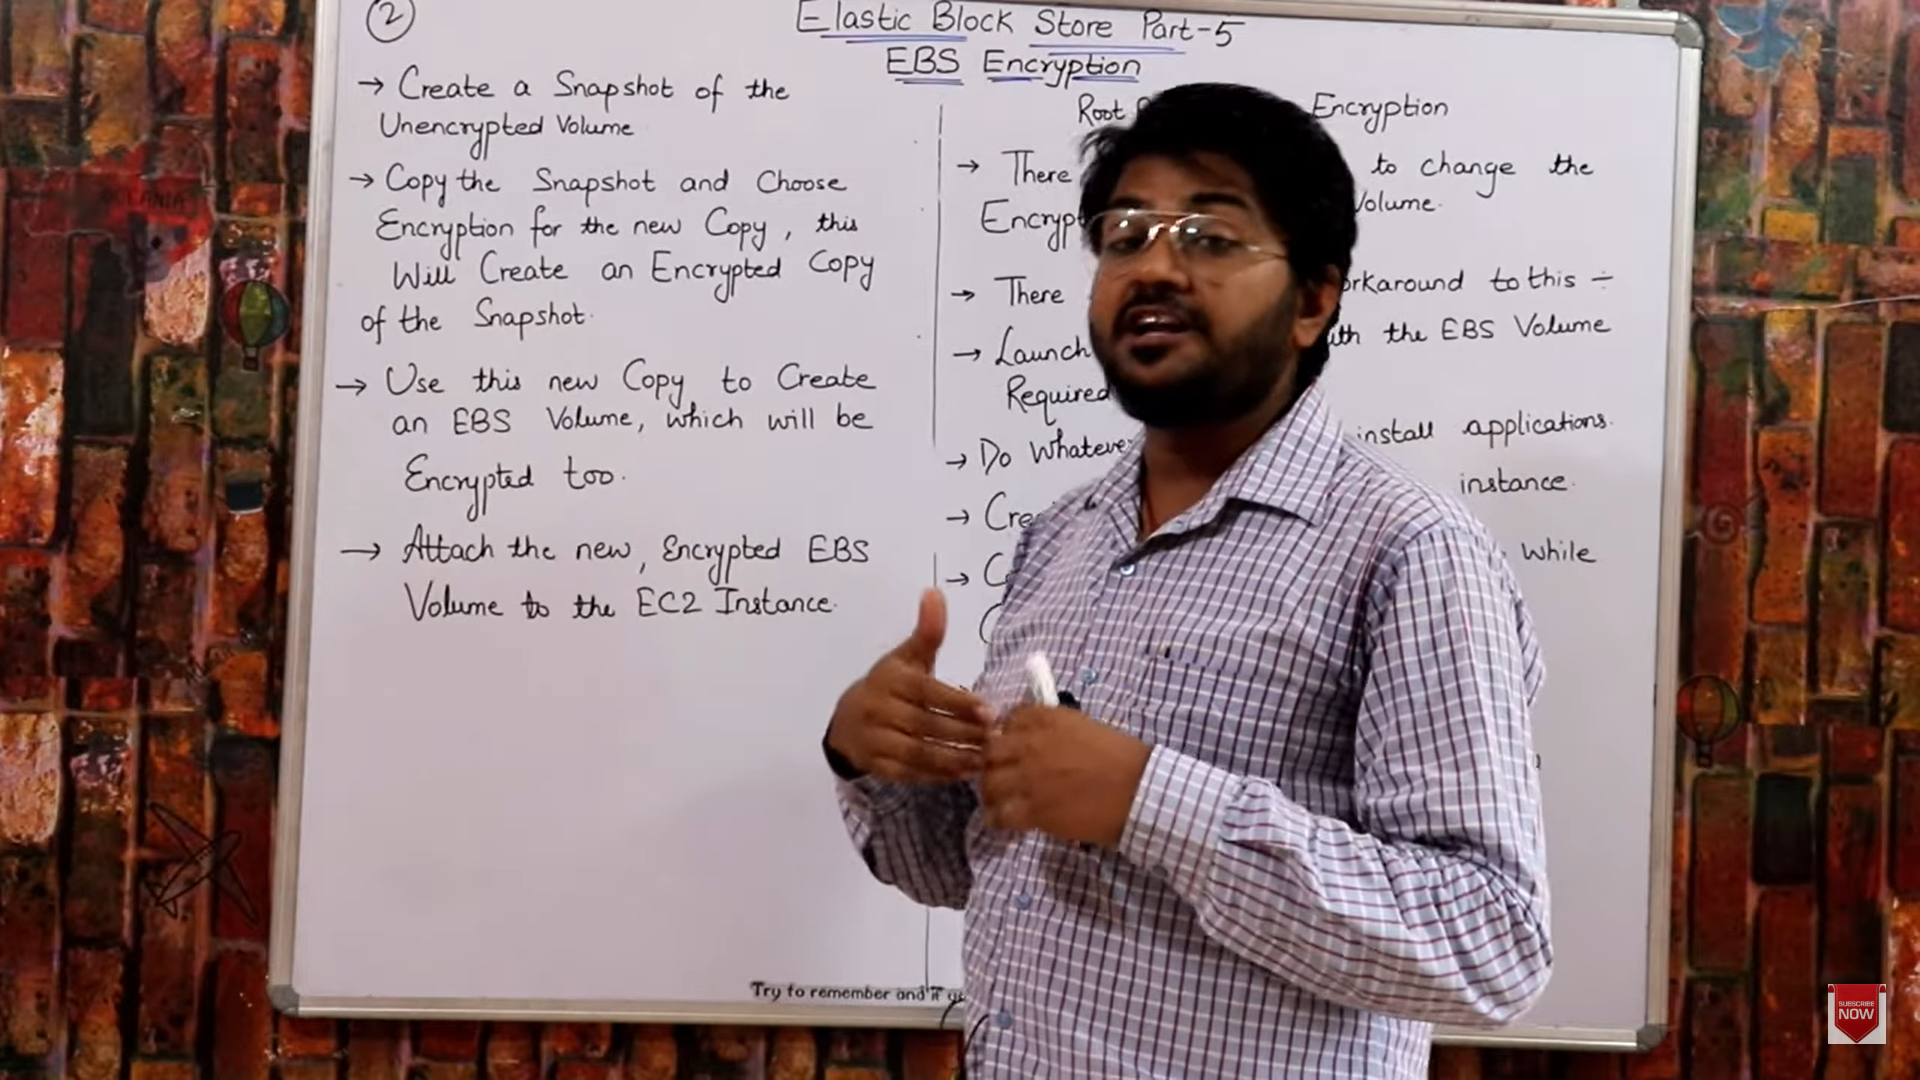 2
Elastic Block Store Part-5
EBS Encryption
→ Create a Snapshot of the
Unencrypted Volume
→ Copy the Snapshot and Choose
Encryption for the new Copy, this
Will Create an Encrypted Copy
of the Snapshot.
→ Use this new Copy to Create
an EBS Volume, which will be
Encrypted too.
→ Attach the new, Encrypted EBS
Volume to the EC2 Instance.
Root Encryption
→ There to change the
Volume.
→ There to this ÷
→ Launch the EBS Volume
Required
→ Do install applications.
→ instance.
→ while
Try to remember and
OCEANIA
SUBSCRIBE
NOW